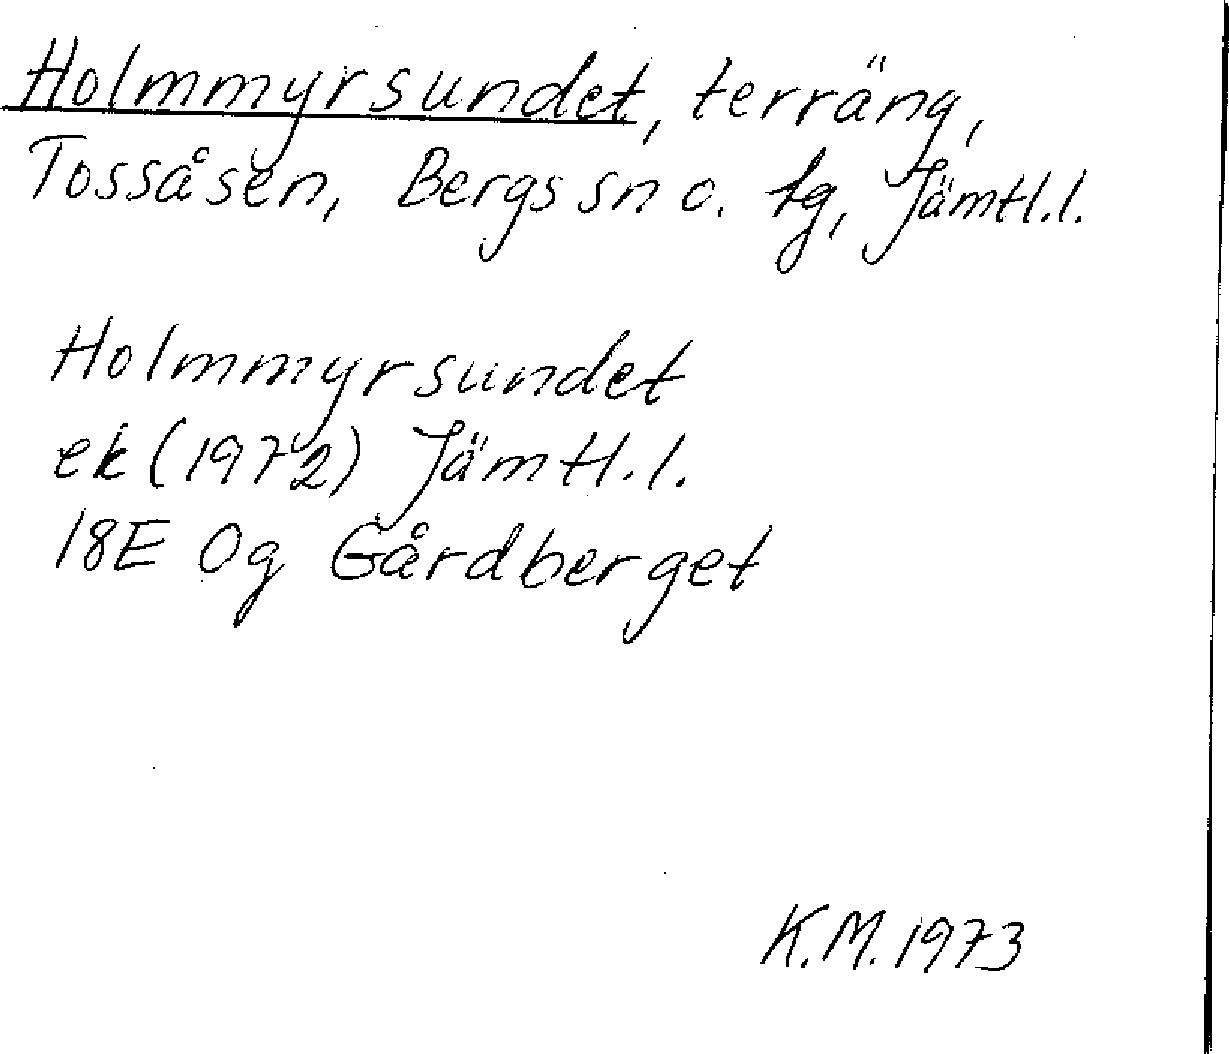 Holmmyrsundet, terräng,
Tossåsen, Bergs sn o. tg, Jämtl.l.
Holmmyrsundet
ek (1972) Jämtl.l.
18E 0g Gårdberget
K.M. 1973